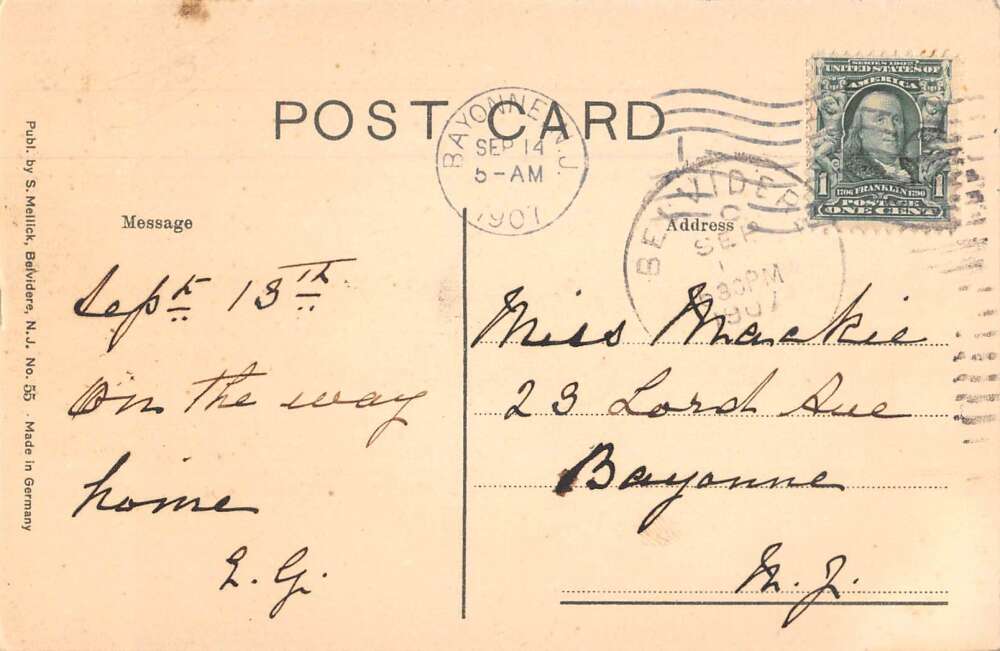 POST CARD
BAYONNE N.J.
SEP 14
5-AM
1907
BELVIDER
SEP
30PM
1907
SERIES 1902
UNITED STATES OF
AMERICA
1 1
1706 FRANKLIN 1790
POSTAGE
ONE CENT
Message
Sept 13th
On the way
home
L. G.
Address
Miss Mackie
23 Lord Ave
Bayonne
N. J.
Publ. by S. Mellick, Belvidere, N.J. No. 55 . Made in Germany